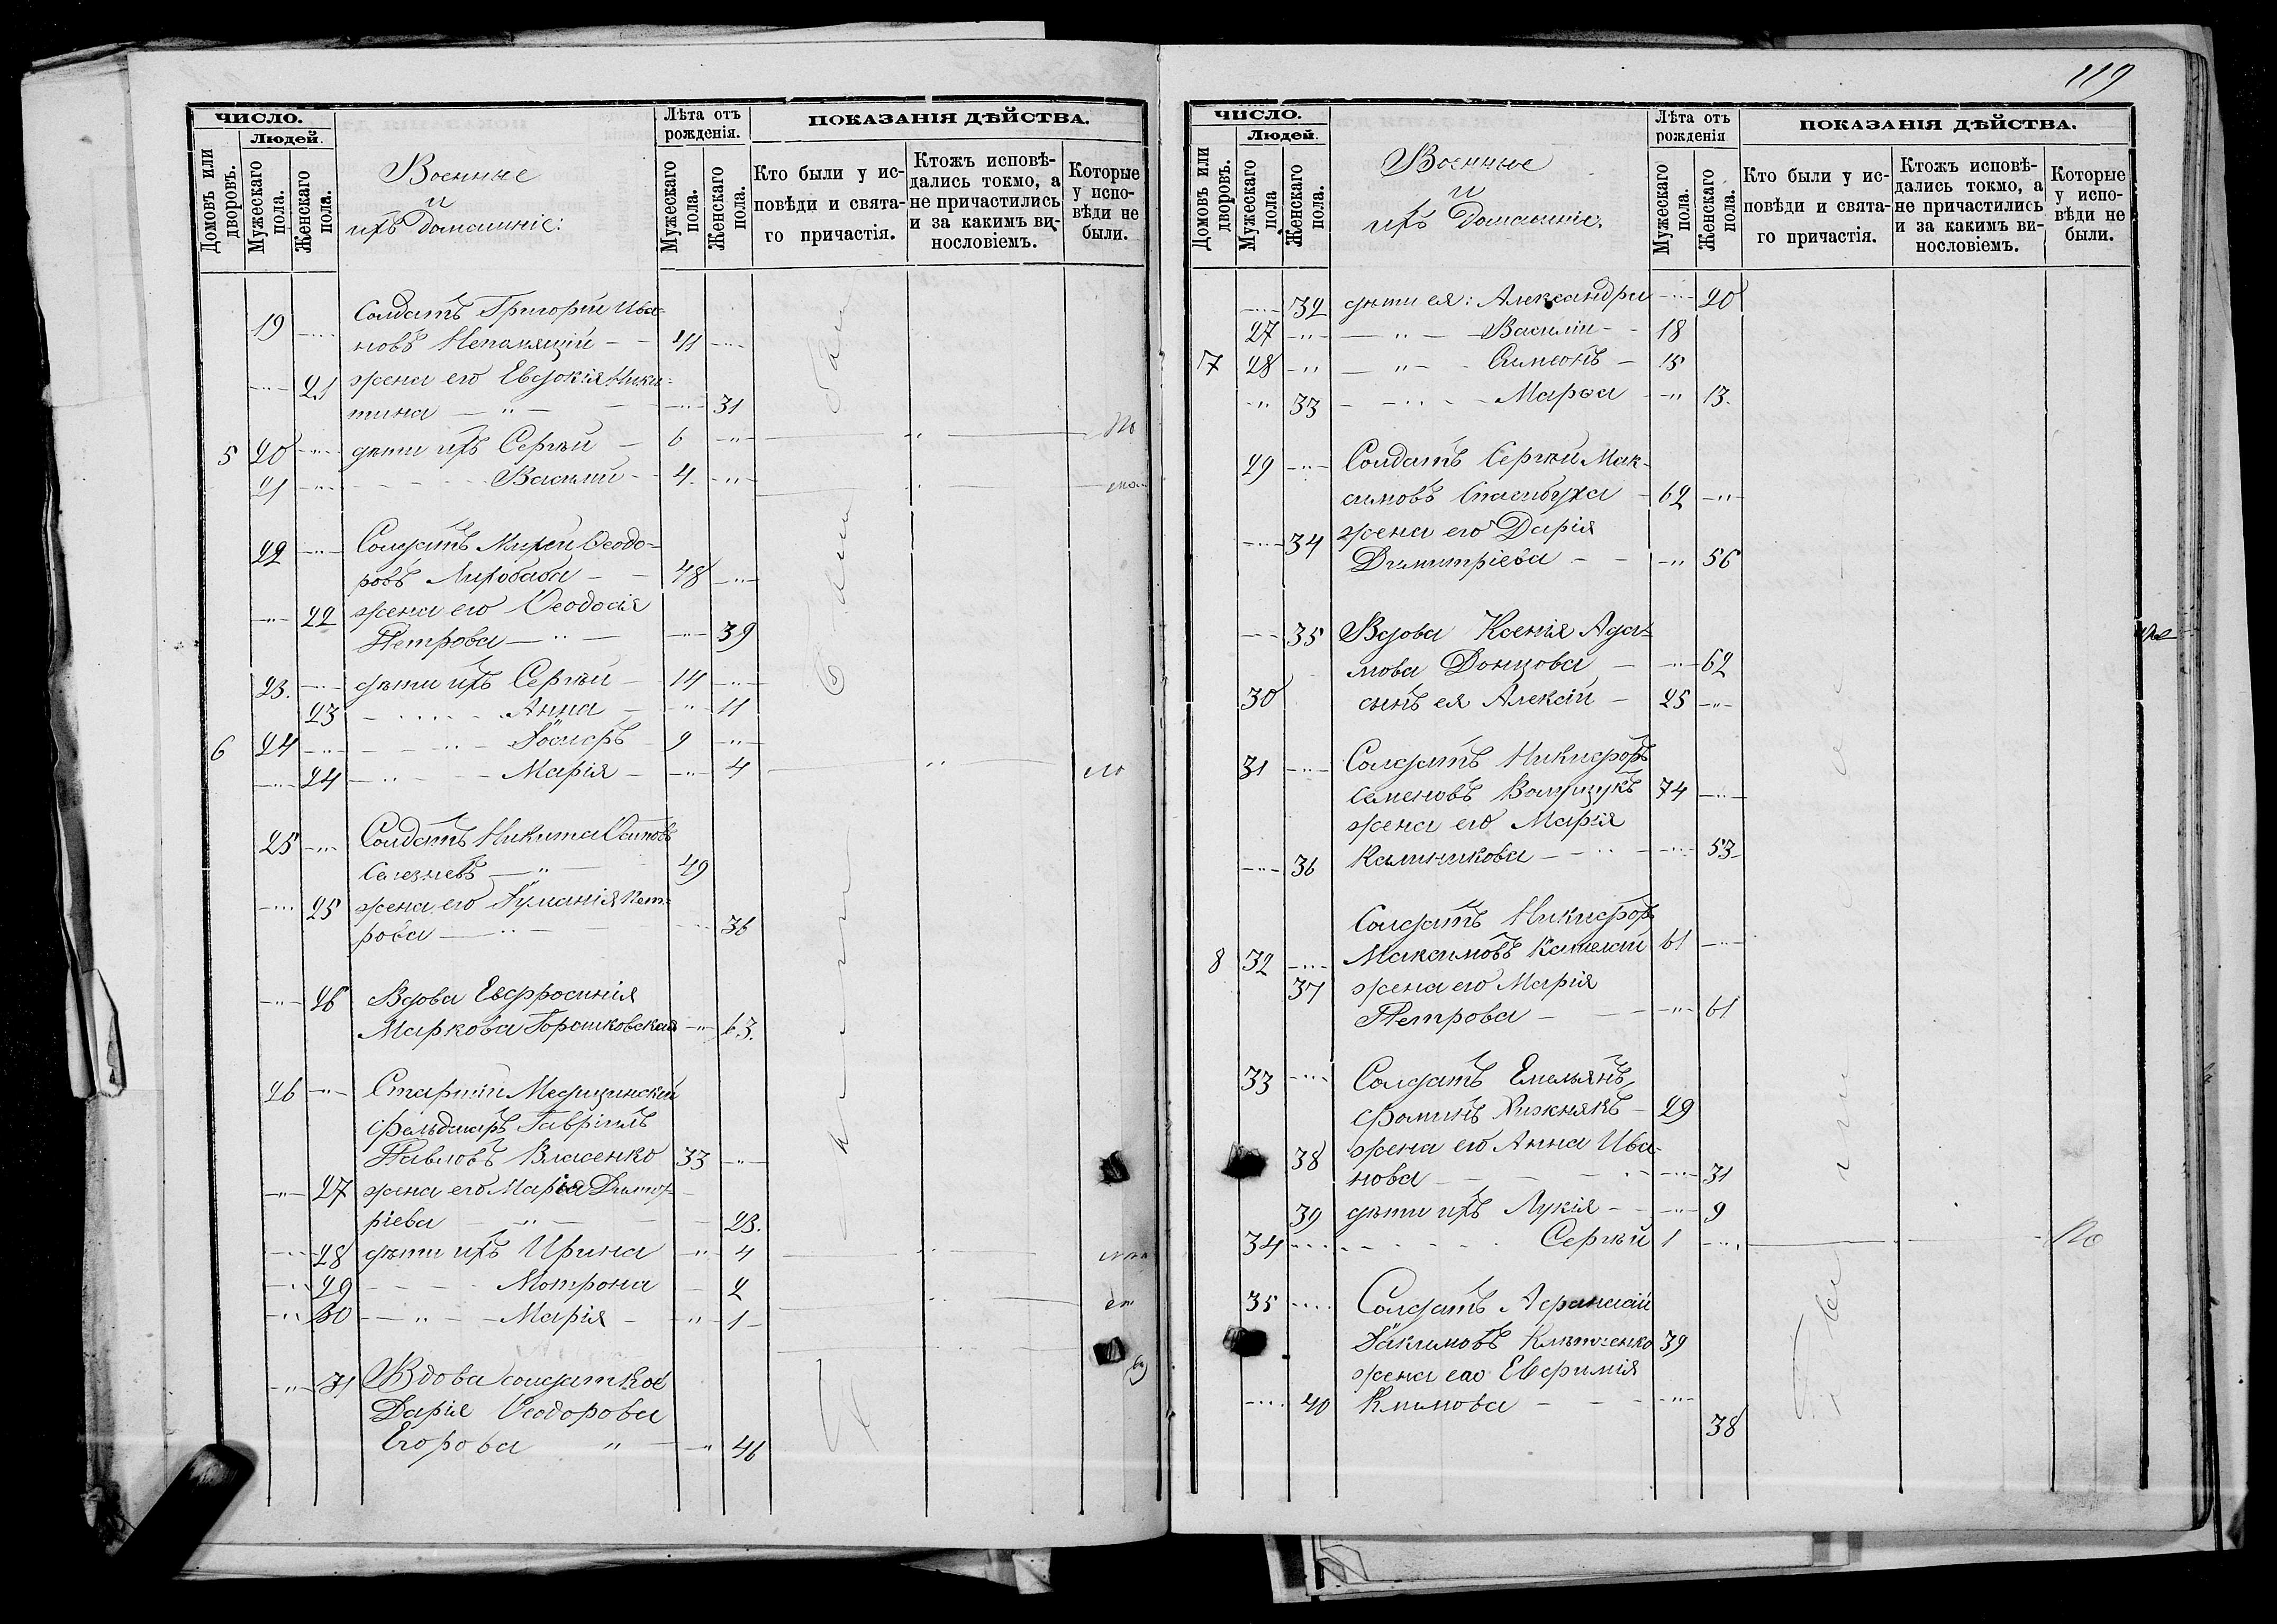 ЧИСЛО.
Людей.
Домовъ или дворовъ.
Мужескаго пола.
Женскаго пола.
Военные
и
ихъ домашніе:
Лѣта отъ рожденія.
Мужескаго пола.
Женскаго пола.
ПОКАЗАНІЯ ДѢЙСТВА.
Кто были у ис-
повѣди и свята-
го причастія.
Ктожъ исповѣ-
дались токмо, а
не причастились
и за какимъ ви-
нословіемъ.
Которые
у испо-
вѣди не
были.
19 Солдатъ Григорій Ива-
новъ 41
21 жена его Евдокія Ники-
тина 31
5 20 дѣти ихъ Сергѣй 6
21 Василій 4
22 Солдатъ Ѳеодо-
ровъ Лихобаба 48
22 жена его Ѳеодосія
Петрова 39
23. дѣти ихъ Сергѣй 14
23 Анна 11
6 24 Іосифъ 9
24 Марія 4
25 Солдатъ Никита Осиповъ
Селезневъ 49
25 жена его Іуліанія Пет-
рова 36
26 Вдова Евфросинія
Маркова Горошковская 63.
26 Старшій Медицинскій
фельдшеръ Гавріилъ
Павловъ Власенко 33
27 жена его Марія Димит-
ріева 23.
28 дѣти ихъ Ирина 4
29 Мотрона 2
30 Марія 1
31 Вдова солдатка
Дарія Ѳеодорова
Егорова 46
119
ЧИСЛО.
Людей.
Домовъ или дворовъ.
Мужескаго пола
Женскаго пола.
Военные
и
ихъ домашніе.
Лѣта отъ рожденія
Мужескаго пола.
Женскаго пола.
ПОКАЗАНІЯ ДѢЙСТВА.
Кто были у ис-
повѣди и свята-
го причастія.
Ктожъ исповѣ-
дались токмо, а
не причастились
и за какимъ ви-
нословіемъ.
Которые
у испо-
вѣди не
были.
32 дѣти ея: Александра 20
27 Василій 18
7 28 Симеонъ 15
33 Марѳа 13.
29 Солдатъ Сергѣй Мак-
симовъ Спасибуха 62
34 жена его Дарія
Димитріева 56
35 Вдова Ксенія Ада-
мова Донцова 62
30 сынъ ея Алексій 25
31 Солдатъ Никифоръ
Семеновъ 74
жена его Марія
36 Калиникова 53
Солдатъ Никифоръ
8 32 Максимовъ 61
37 жена его Марія
Петрова 61
33 Солдатъ Емельянъ
Фоминъ Хижнякъ 29
38 жена его Анна Ива-
нова 31
39 дѣти ихъ Лукія 9
34 Сергѣй 1
35 Солдатъ Афанасій
Іакимовъ 39
жена его Евфимія
40 Климова
38